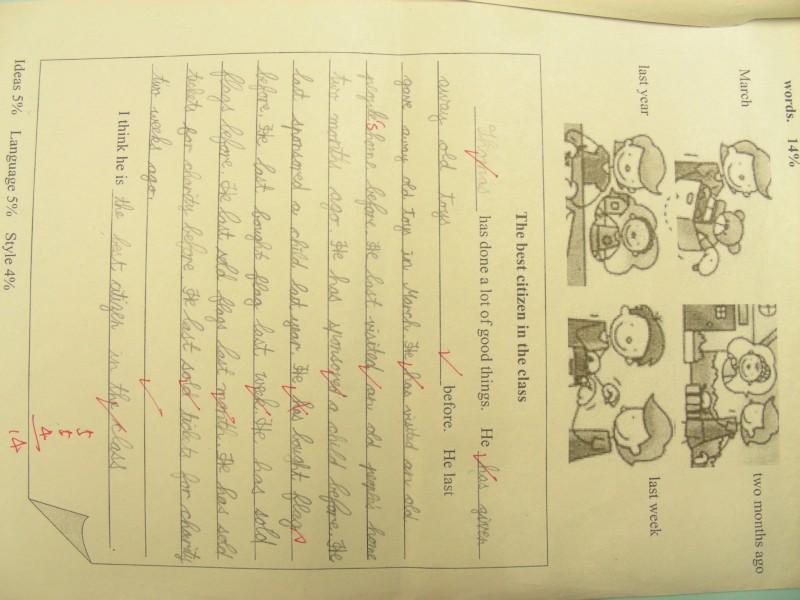 words. 14%
March
two months ago
last year
last week
The best citizen in the class
Thomas has done a lot of good things. He has given
away old toys before. He last
gave away old toys in March. He has visited an old
people's home before. He last visited an old people's home
two months ago. He has sponsored a child before. He
last sponsored a child last year. He has bought flags
before. He last bought flag last week. He has sold
flags before. He last sold flags last month. He has sold
tickets for charity before. He last sold tickets for charity
two weeks ago.
I think he is the best citizen in the class.
5
5
4
14
Ideas 5% Language 5% Style 4%